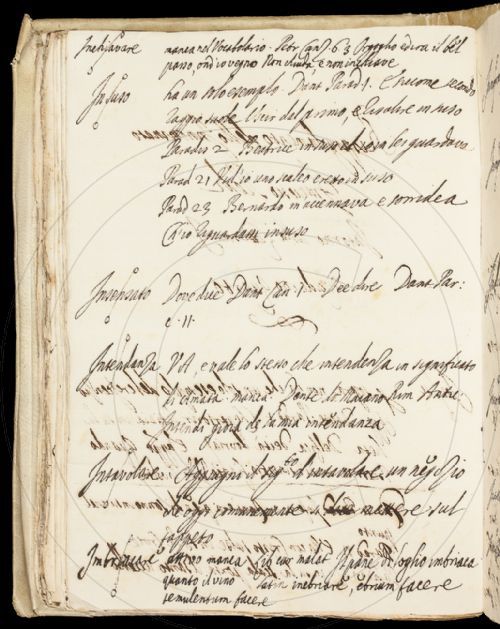 Inchiavare manca nel Vocabolario. Petr Can. 6. 3 Orgoglio ed ira il bel
passo, ond'io vegno Non chiuda, e non inchiave
Insuso ha un solo esempio. Dant Parad 1. E siccome secondo
raggio suole Uscir del primo, e risalire in suso
Paradis 2 Beatrice in suso, ed io in lei guardava
Parad 21 Vid'io uno scaleo eretto in suso
Parad 23 Bernardo m'accennava e sorridea
Ch'io guardassi in suso
Insensato Dove due Dant Can 1. Dee dire Dant Par:
c. 11.
Intendanza V.A., e vale lo stesso che intendenza in significato
di manca Dante da Maiano Rim Antic
gioia de la mia intendanza
Intavolare un negozio
oggi comunemente si mettere sul
tappeto
Imbriacare attivo manca Il pane di loglio imbriaca
quanto il vino Latin inebriare, ebrium facere
temulentum facere